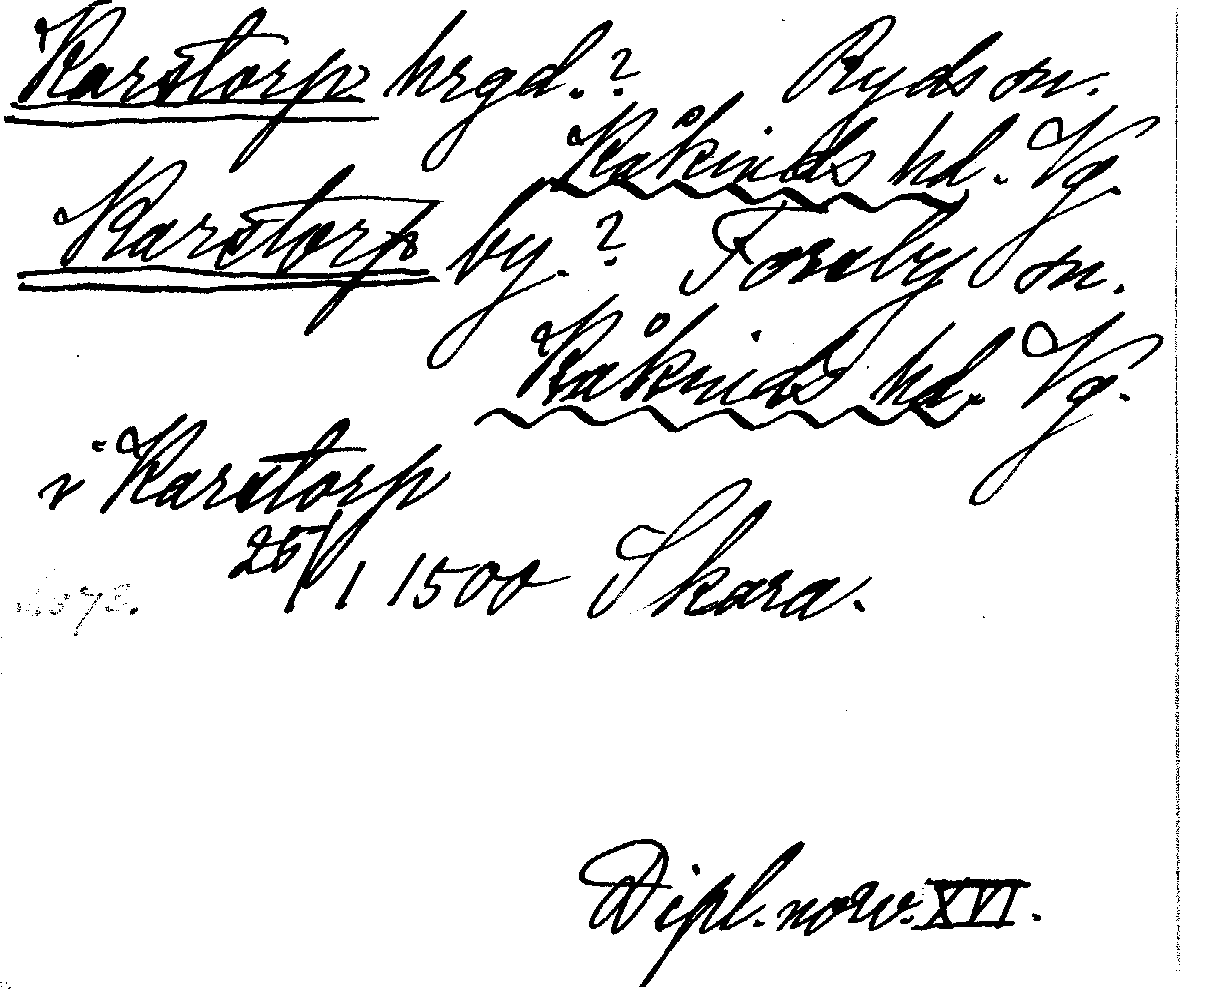 Karstorp hrgd.? Ryds sn.
Kåkinds hd. Vg.
Karstorp by.? Forsby sn.
Kåkinds hd. Vg.
i Karstorp
25/1 1500 Skara.
Dipl. norv. XVI.